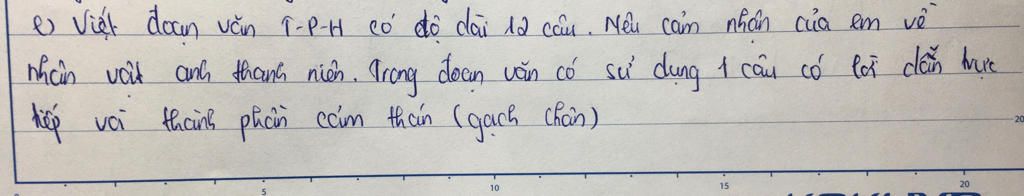 e) Viết đoạn văn T-P-H có độ dài 12 câu. Nêu cảm nhận của em về
nhân vật anh thanh niên. Trong đoạn văn có sử dụng 1 câu có lời dẫn trực
tiếp và thành phần cảm thán (gạch chân)
5
10
15
20
20